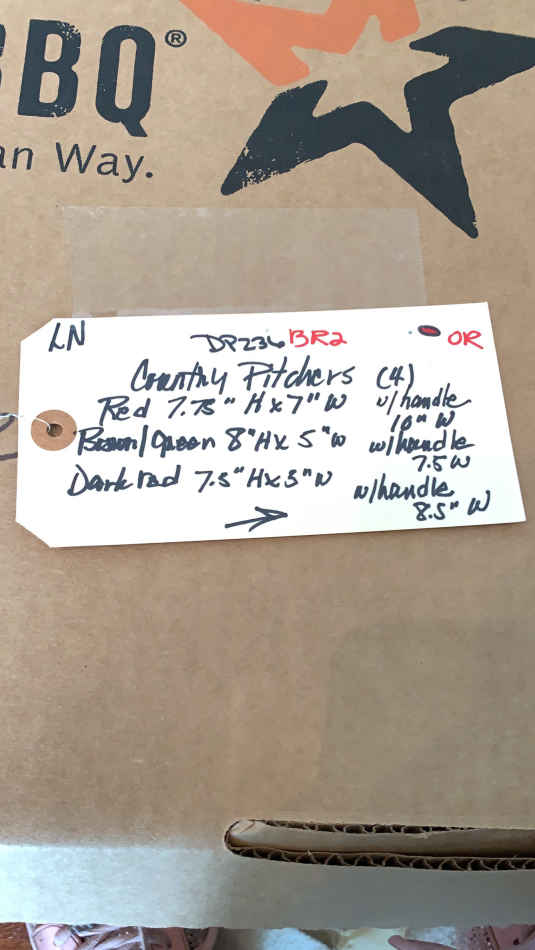 BBQ®
an Way.
LN DP236 BR2 OR
Country Pitchers (4)
Red 7.75" H x 7" W w/handle 10" W
Brown/Green 8" H x 5" W w/handle 7.5 W
Dark red 7.5" H x 5" W w/handle 8.5" W